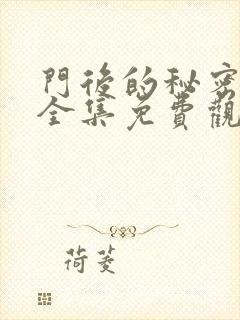 門後的秘密
全集免費觀
荷菱